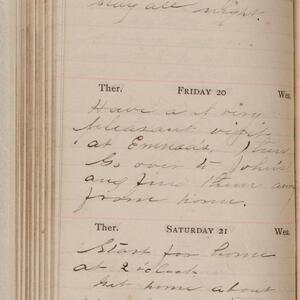 stay all night.
Ther. FRIDAY 20 Wea.
Have a very
pleasant visit
at Emma's. Then
Go over to John's
and find them away
from home.
Ther. SATURDAY 21 Wea.
Start for home
at 2 o'clock
get home about